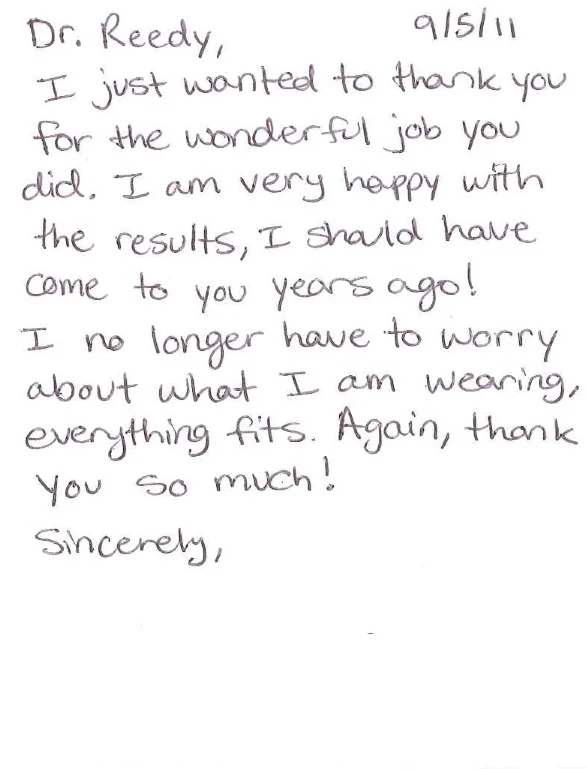 Dr. Reedy, 9/5/11
I just wanted to thank you
for the wonderful job you
did. I am very happy with
the results, I should have
come to you years ago!
I no longer have to worry
about what I am wearing,
everything fits. Again, thank
you so much!
Sincerely,